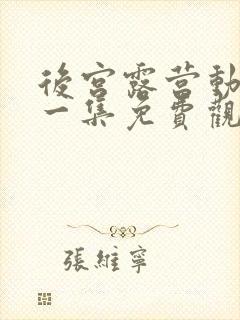 後宮露营動
一集免費觀
張維寧